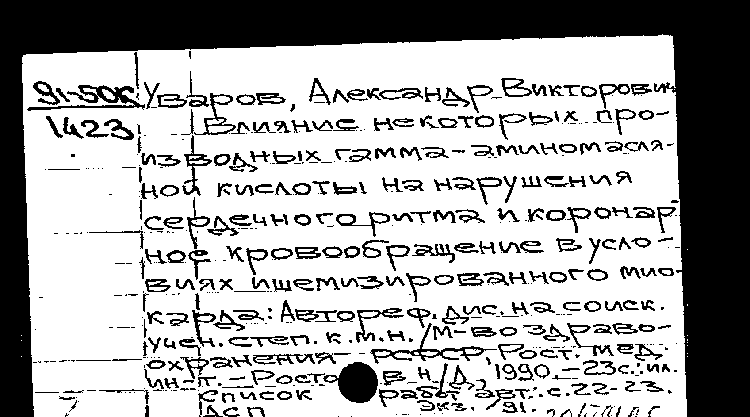 91-50К Уваров, Александр Викторович
1423 Влияние некоторых про-
изводных гамма-аминомасля-
ной кислоты на нарушения
сердечного ритма и коронар-
ное кровообращение в усло-
виях ишемизированного мио-
карда: Автореф. дис. на соиск.
учен. степ. к.м.н. / М-во здраво-
охранения РСФСР, Рост. мед.
ин-т. - Росто в н/Д, 1990. - 23с.: ил.
список работ авт.: с. 22-23.
ДСП экз. 91.